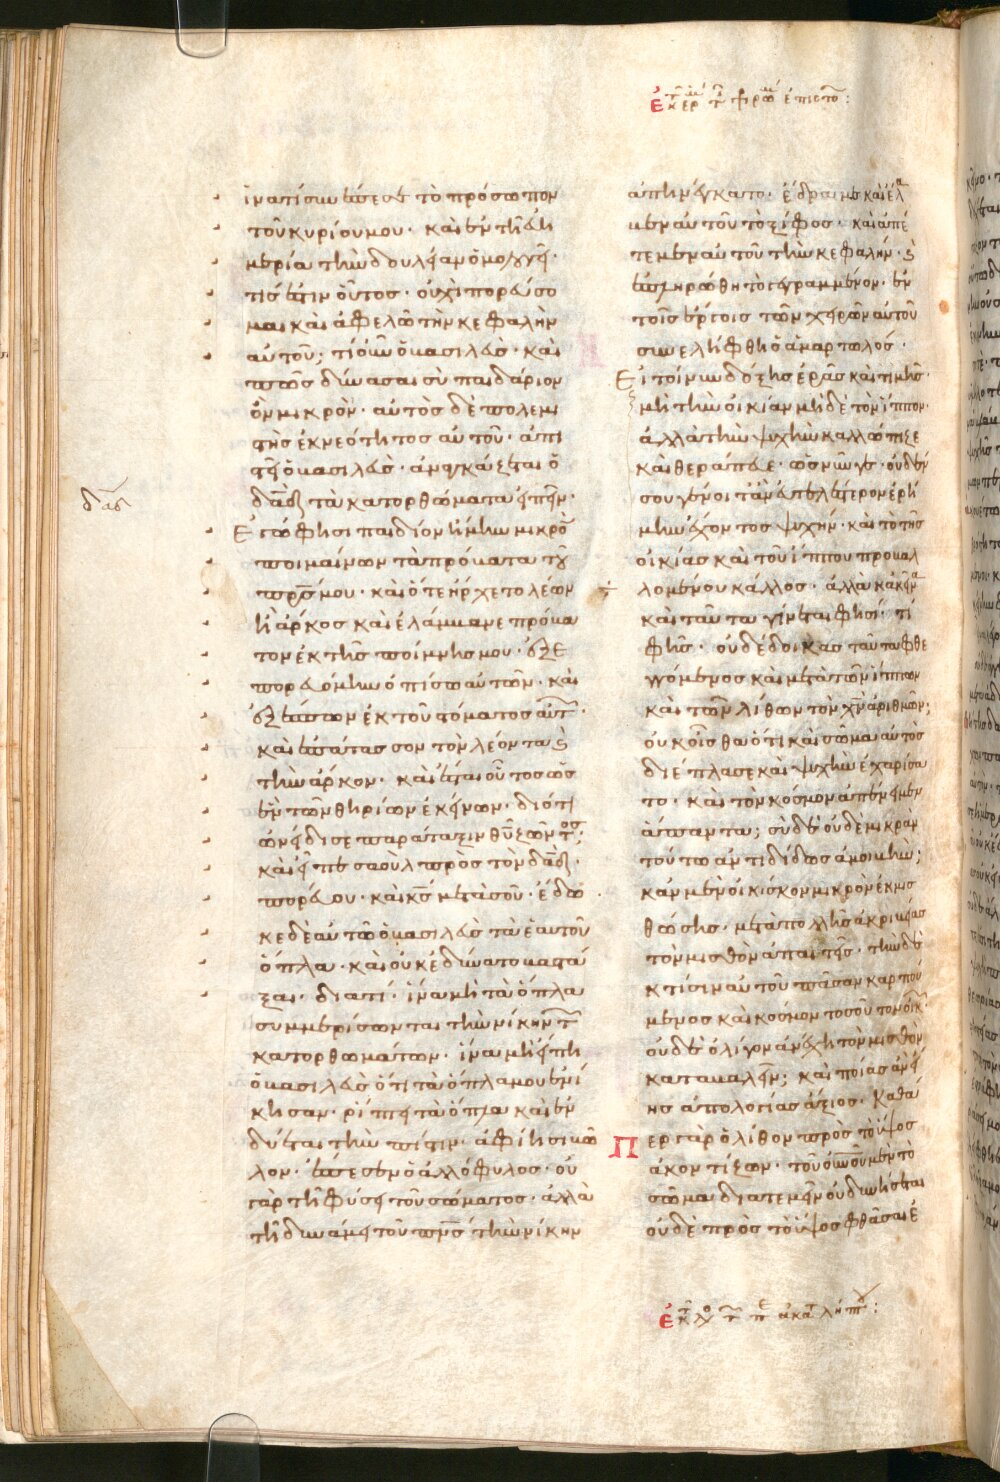 ἐκ τῆς ἑρμ τῆς πρ ῥωμ ἐπιστο:
ἵνα πίσω ἐπὶ τὸ πρόσωπον
τοῦ κυρίου μου· καὶ ἐν τῇ
μεριὰ τὴν δουλείαν ὁμολογεῖ·
τίς ἐστιν οὗτος· οὐχὶ πορεύσο
μαι καὶ ἀφελῶ τὴν κεφαλὴν
αὐτοῦ; τί οὖν ὁ βασιλεὺς· καὶ
πῶς δύνασαι σὺ παιδάριον
ὂν μικρὸν· αὐτὸς δὲ πολεμι
τὴς ἐκ νεότητος αὐτοῦ· ἀπι
στεῖ ὁ βασιλεὺς· ἀναγκάζεται ὁ
δαδ τὰ κατορθώματα εἰπεῖν·
δαδ
Ἐγὼ φησι παιδίον ἤμην μικρὸ
ποιμαίνων τὰ πρόβατα τοῦ
πρσ μου· καὶ ὅτε ἤρχετο λέων
ἢ ἄρκος καὶ ἐλάμβανε πρόβα
τον ἐκ τῆς ποίμνης μου· ἐξε
πορευόμην ὀπίσω αὐτῶν· καὶ
ἐξέσπων ἐκ τοῦ στόματος αὐτ·
καὶ ἐπάτασσον τὸν λέοντα καὶ
τὴν ἄρκον· καὶ ἔσται οὗτος ὡς
ἓν τῶν θηρίων ἐκείνων· διότι
ὠνείδισε παράταξιν θυ ζῶντος·
καὶ εἶπε σαοὺλ πρὸς τὸν δαδ·
πορεύου· καὶ κς μετὰ σοῦ· ἔδω
κε δὲ αὐτῷ ὁ βασιλεὺς τὰ ἑαυτοῦ
ὅπλα· καὶ οὐκ ἐδύνατο βαστά
ξαι· διατί· ἵνα μὴ τὰ ὅπλα
συμμερίσωνται τὴν νίκην τῶν
κατορθωμάτων· ἵνα μὴ εἴπη
ὁ βασιλεὺς ὅτι τὰ ὅπλα μου ἐνί
κησαν· ῥίπτει τὰ ὅπλα καὶ ἐν
δύεται τὴν πίστιν· ἀφίησι βῶ
λον· ἔπεσεν ὁ ἀλλόφυλος· οὐ
γὰρ τῇ φύσει τοῦ σώματος· ἀλλὰ
τῇ δυνάμει τοῦ πνς τὴν νίκην
ἀπηνέγκατο· ἔδραμε καὶ ἔλα
βεν αὐτοῦ τὸ ξίφος· καὶ ἀπέ
τεμεν αὐτοῦ τὴν κεφαλήν· καὶ
ἐπληρώθη τὸ γεγραμμένον· ἐν
τοῖς ἔργοις τῶν χειρῶν αὐτοῦ
συνελήφθη ὁ ἁμαρτωλός·
Εἰ τοίνυν δόξης ἐρᾶς καὶ τιμῆς·
μὴ τὴν οἰκίαν μὴ δὲ τὸν ἵππον·
ἀλλὰ τὴν ψυχὴν καλλώπιζε
καὶ θεράπευε· ὡς νῦν γε· οὐδέν
σου γένοιτ' ἂν εὐτελέστερον ἐρή
μην ἔχοντος ψυχήν· καὶ τὸ τῆς
οἰκίας καὶ τοῦ ἵππου προβαλ
λομένου κάλλος· ἀλλὰ κἀκεῖνα
καὶ ταῦτα γίνεται φησί· τί
φῆς· οὐ δέδοικας ταῦτα φθε
γγόμενος καὶ μετὰ τῶν ἵππων
καὶ τῶν λίθων τὸν χν ἀριθμῶν;
οὐκ οἶσθα ὅτι καὶ σῶμα αὐτὸς
διέπλασε καὶ ψυχὴν ἐχαρίσα
το· καὶ τὸν κόσμον ἀπένειμεν
ἅπαντα; σὺ δὲ οὐδὲ μικρὰν
τούτω ἀντιδίδως ἀμοιβὴν;
κἂν μὲν οἰκίσκον μικρὸν ἐκμισ
θώσης· μετὰ πολλῆς ἀκριβείας
τὸν μισθὸν ἀπαιτεῖς· τὴν δὲ
κτίσιν αὐτοῦ πᾶσαν καρπού
μενος καὶ κόσμον τοσοῦτον οἰκῶν·
οὐδὲ ὀλίγον ἀνέχῃ τὸν μισθὸν
καταβαλεῖν; καὶ ποίας ἂν εἴ
ης ἀπολογίας ἄξιος· Καθά
Περ γὰρ ὁ λίθον πρὸς τὸ ὕψος
ἀκοντίζων· τοῦ οὐνου μὲν τὸ
σῶμα διατεμεῖν οὐ δυνήσεται
οὐδὲ πρὸς τὸ ὕψος φθᾶσαι ἐ